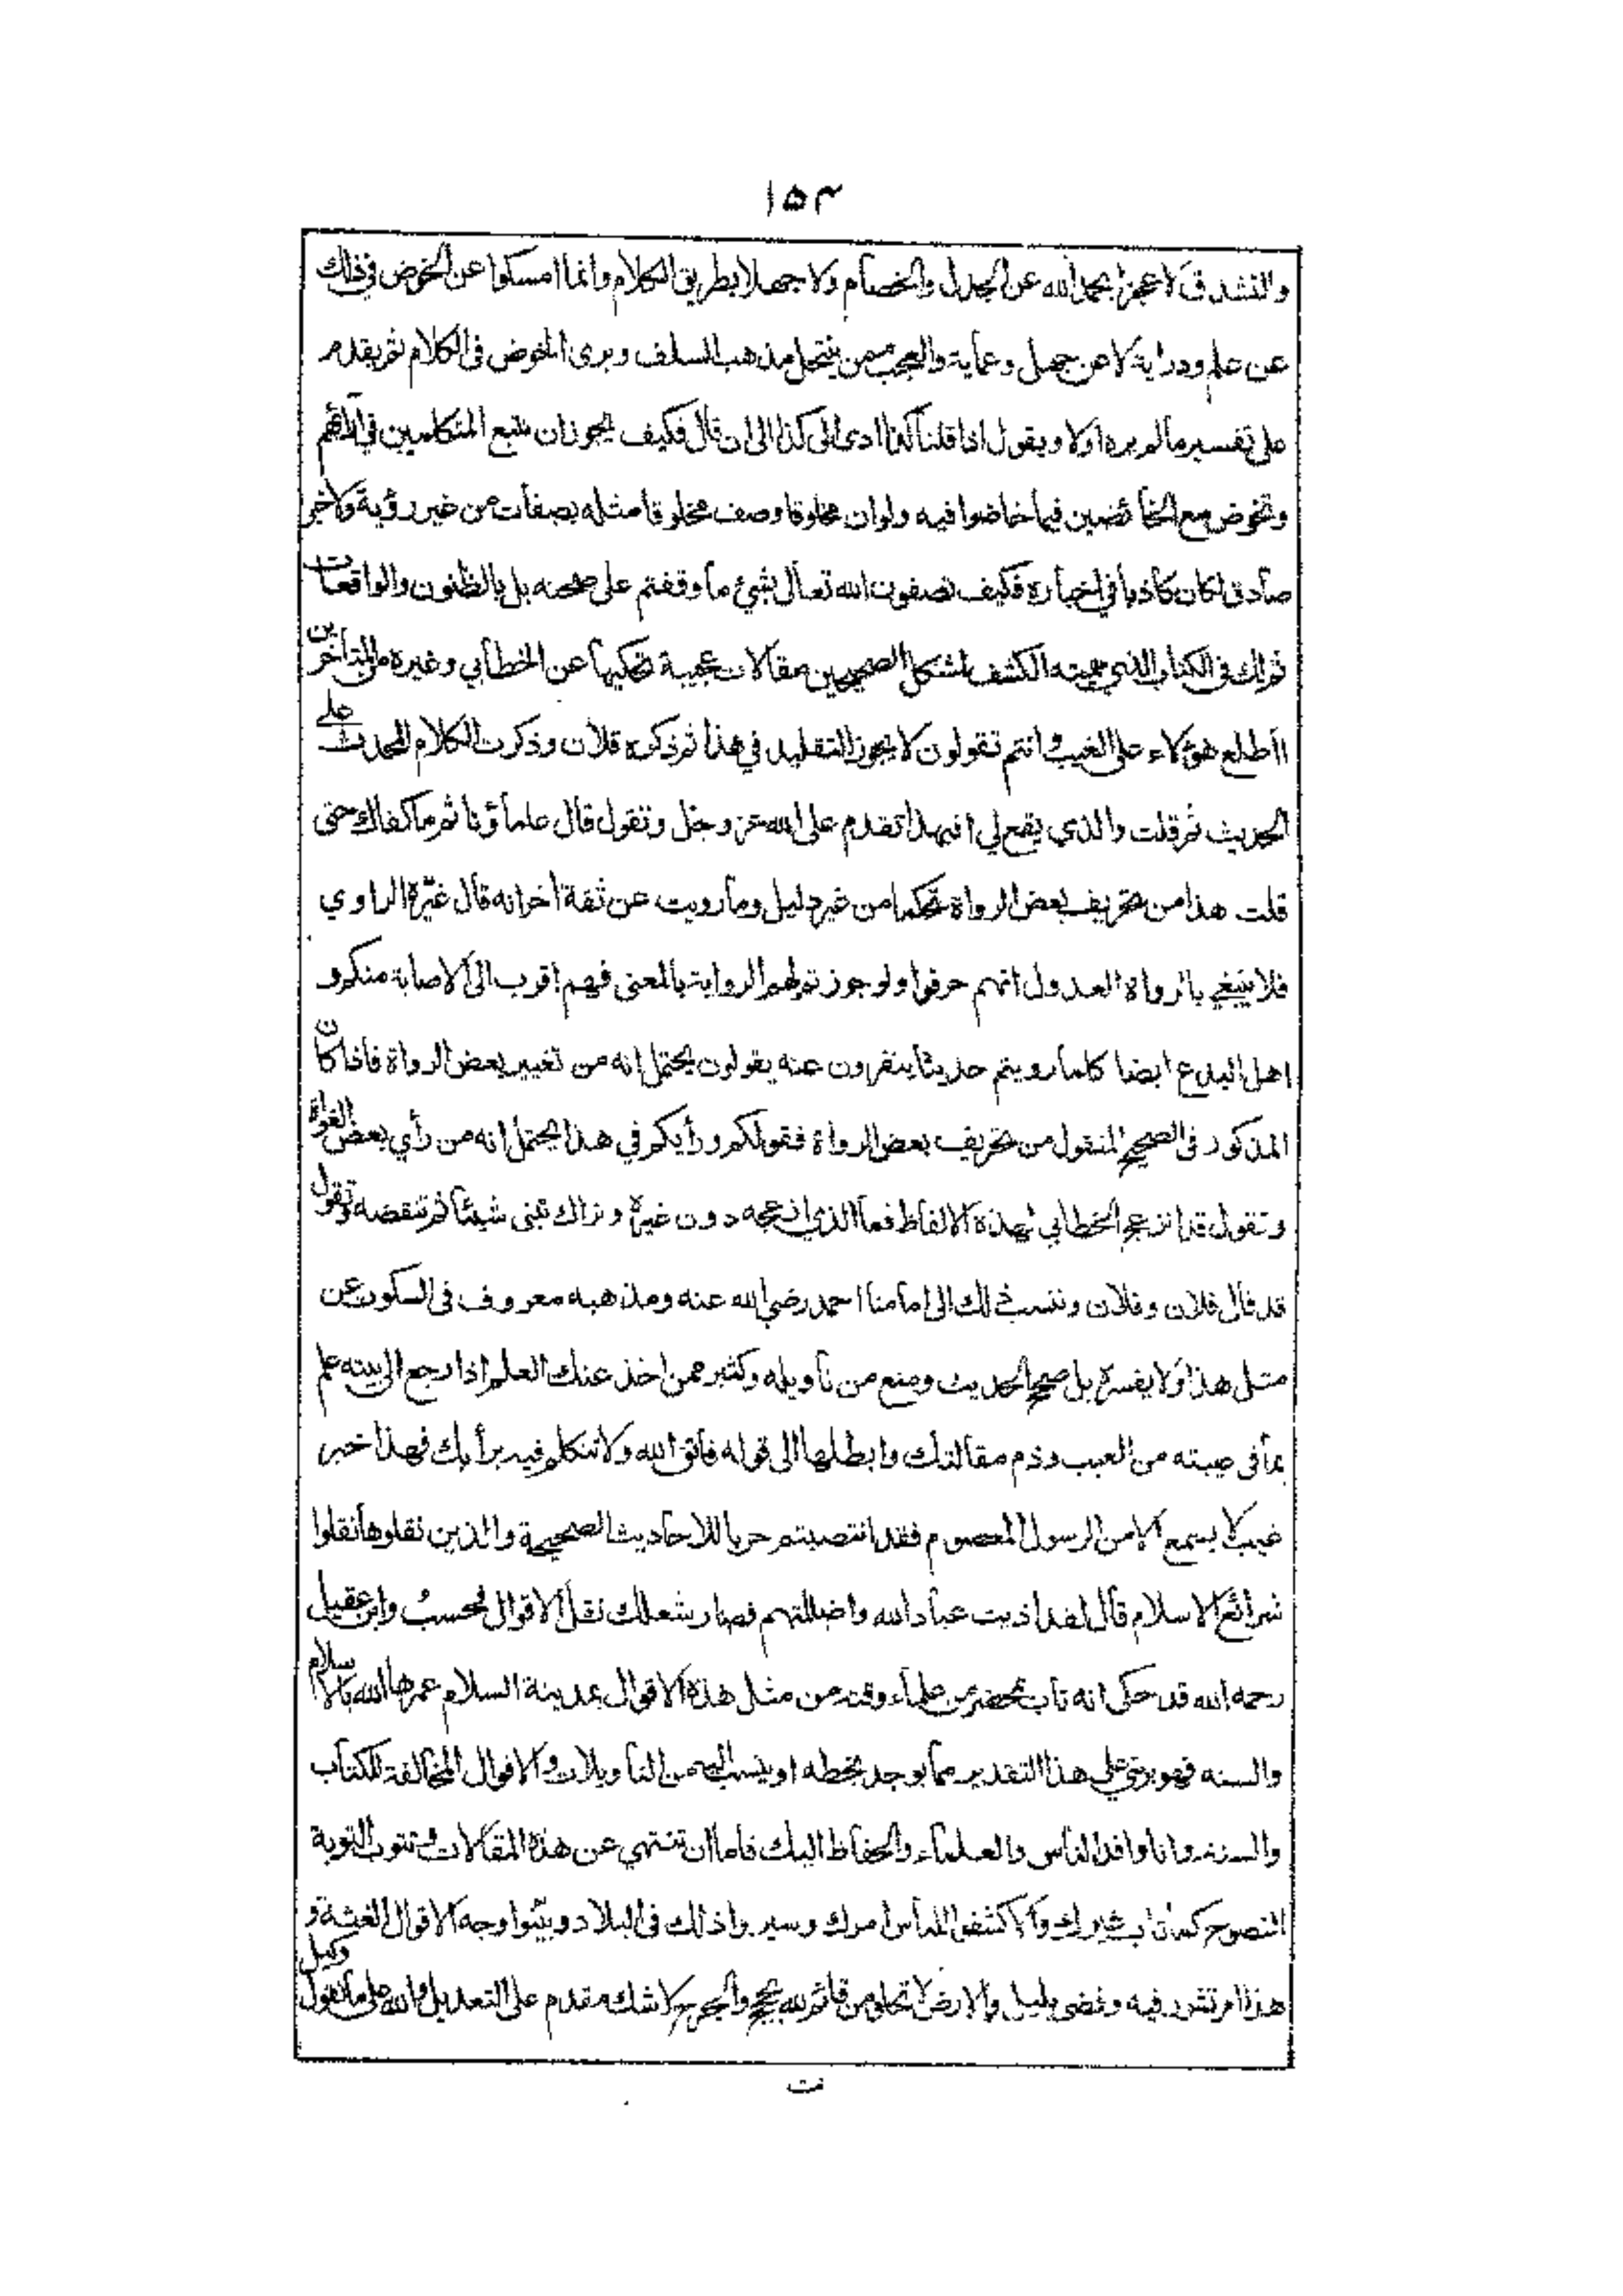 ١٥٣
والتشدق لا عجزا بحمد الله عن الجدال والخصام ولا جهلا بطريق الكلام وانما امسكوا عن الخوض في ذلك
عن علم ودراية لا عن جهل وعماية والعجب ممن ينتحل مذهب السلف ويرى الخوض فى الكلام ثم يقدم
على تفسير ما لم يره اولا ويقول اذا قلنا كذا ادى الى كذا الى ان قال فكيف يجوز ان نتبع المتكلمين في آرائهم
ونخوض مع الخائضين فيما خاضوا فيه ولو ان مخلوقا وصف مخلوقا مثله بصفات من غير رؤية ولا خبر
صادق لكان كاذبا في اخباره فكيف تصفون الله تعالى بشيء ما وقفتم على صحته بل بالظنون والواقعات
ثم لك فى الكتاب الذي سميته الكشف لمشكل الصحيحين مقالات عجيبة تحكيها عن الخطابي وغيره من المتأخرين
أاطلع هؤلاء على الغيب وانتم تقولون لا يجوز التقليد في هذا ثم ذكره فلان وذكرت الكلام المحدث على
الحديث ثم قلت والذي يقع لي افبهذا تقدم على الله عز وجل وتقول قال علماؤنا ثم ما كفاك حتى
قلت هذا من تحريف بعض الرواة تحكما من غير دليل وما رويت عن ثقة اخر انه قال غيّره الراوي
فلا ينبغي بالرواة العدول انهم حرفوا ولو جوزتم لهم الرواية بالمعنى فهم اقرب الى الاصابة منكم و
اهل البدع ايضا كلما رويتم حديثا ينفرون عنه يقولون يحتمل انه من تغيير بعض الرواة فاذا كان
المذكور فى الصحيح المنقول من تحريف بعض الرواة فقولكم ورأيكم في هذا يحتمل انه من رأي بعض الغواة
وتقول قد انزعج الخطابي لهذه الالفاظ فما الذي ازعجه دون غيره ونراك تبنى شيئا ثم تنقضه وتقول
قد قال فلان وفلان وتنسب ذلك الى امامنا احمد رضي الله عنه ومذهبه معروف فى السكوت عن
مثل هذا ولا يفسره بل صحح الحديث ومنع من تأويله وكثير ممن اخذ عنك العلم اذا رجع الى بيته علم
بما فى عيبته من العيب وذم مقالتك وابطلها الى قوله فاتق الله ولا تتكلم فيه برأيك فهذا خبر
غيب لا يسمع الا من الرسول المعصوم فقد انتصبتم حربا للاحاديث الصحيحة والذين نقلوها نقلوا
شرائع الاسلام قال لقد اذيت عباد الله واضللتهم فصار شغلك نقل الاقوال فحسب وابن عقيل
رحمه الله قد حكى انه تاب بمحضر من علماء وقته من مثل هذه الاقوال بمدينة السلام عمرها الله بالاسلام
والسنه فهو بريء على هذا التقدير مما يوجد بخطه او ينسب اليه من التأويلات والاقوال المخالفة للكتاب
والسنة وانا وافد الناس والعلماء والحفاظ اليك فاما ان تنتهي عن هذه المقالات وتتوب التوبة
النصوح كما تاب غيرك والا كشفوا للناس امرك وسيروا ذلك فى البلاد وبينوا وجه الاقوال الغثة و
هذا امر تشور فيه وقضي بليل والارض لا تخلو من قائم لله بحجة والجرح لا شك مقدم على التعديل والله على ما نقول وكيل